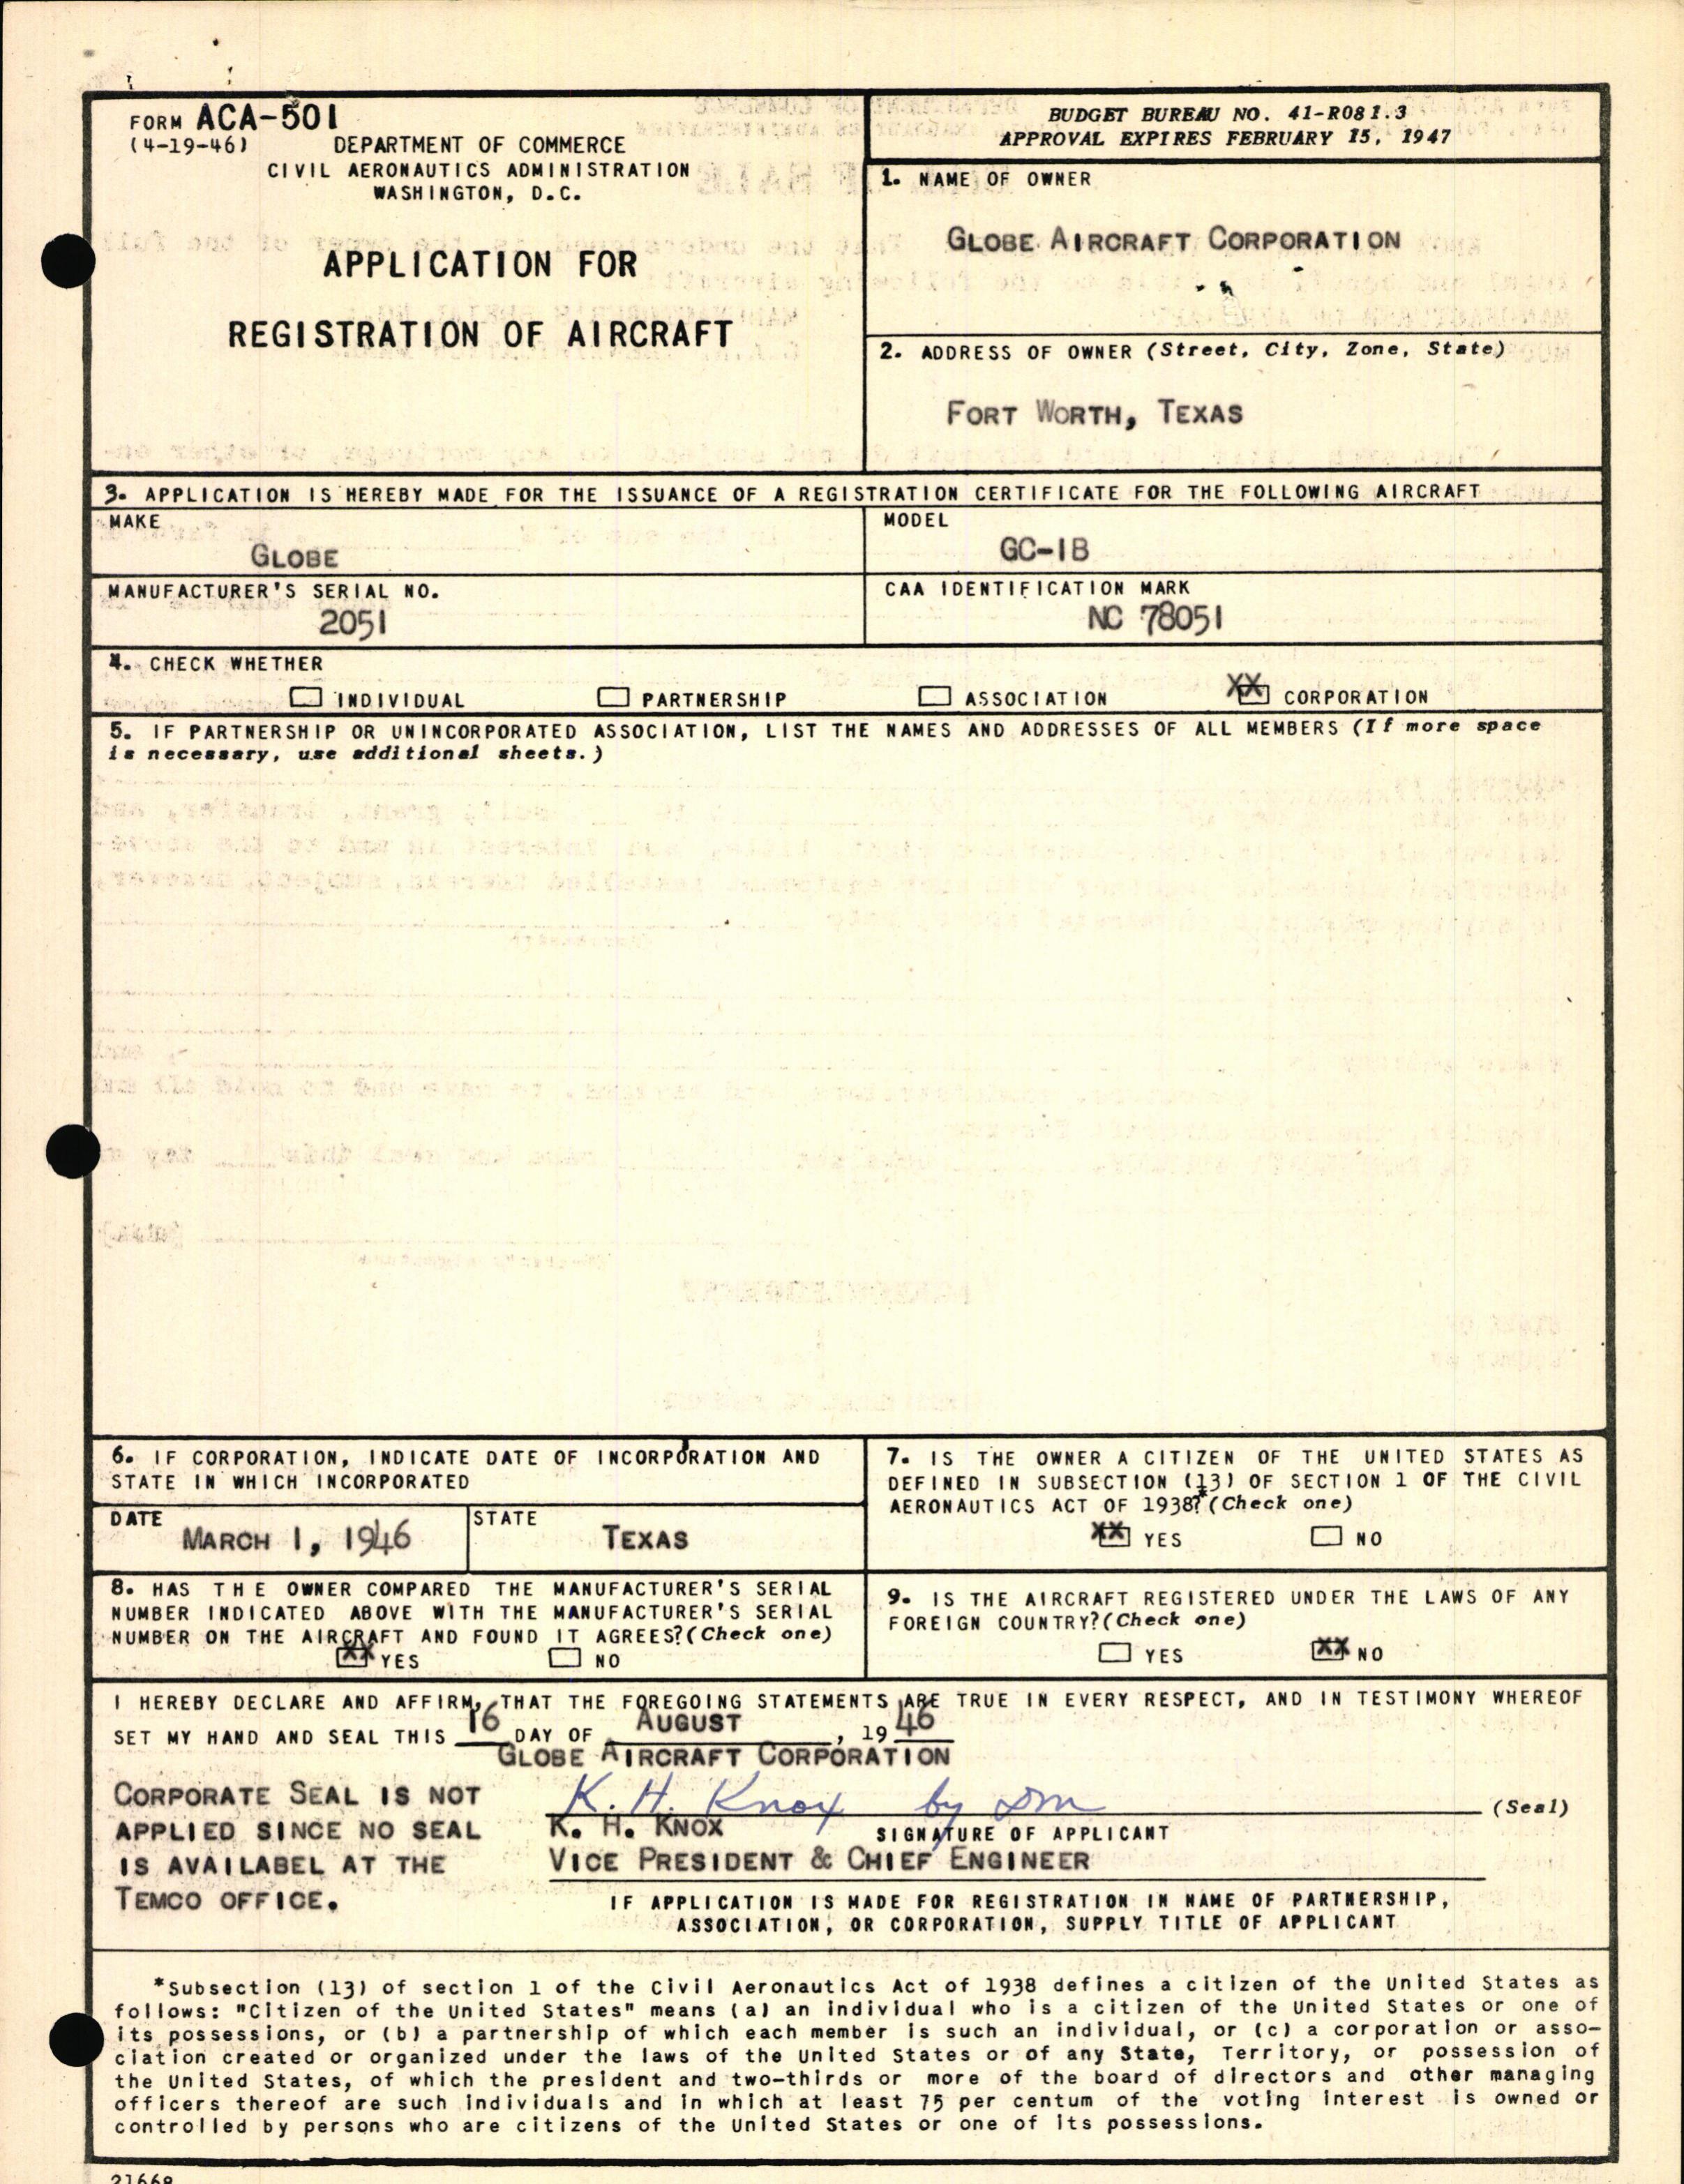 FORM ACA-501
(4-19-46)
DEPARTMENT OF COMMERCE
CIVIL AERONAUTICS ADMINISTRATION
WASHINGTON, D.C.
APPLICATION FOR
REGISTRATION OF AIRCRAFT
BUDGET BUREAU NO. 41-R081.3
APPROVAL EXPIRES FEBRUARY 15, 1947
1. NAME OF OWNER
GLOBE AIRCRAFT CORPORATION
2. ADDRESS OF OWNER (Street, City, Zone, State)
FORT WORTH, TEXAS
3. APPLICATION IS HEREBY MADE FOR THE ISSUANCE OF A REGISTRATION CERTIFICATE FOR THE FOLLOWING AIRCRAFT
MAKE
GLOBE
MODEL
GC-1B
MANUFACTURER'S SERIAL NO.
2051
CAA IDENTIFICATION MARK
NC 78051
4. CHECK WHETHER
INDIVIDUAL PARTNERSHIP ASSOCIATION XX CORPORATION
5. IF PARTNERSHIP OR UNINCORPORATED ASSOCIATION, LIST THE NAMES AND ADDRESSES OF ALL MEMBERS (If more space
is necessary, use additional sheets.)
6. IF CORPORATION, INDICATE DATE OF INCORPORATION AND
STATE IN WHICH INCORPORATED
DATE
MARCH 1, 1946
STATE
TEXAS
7. IS THE OWNER A CITIZEN OF THE UNITED STATES AS
DEFINED IN SUBSECTION (13) OF SECTION 1 OF THE CIVIL
AERONAUTICS ACT OF 1938?*(Check one)
XX YES NO
8. HAS THE OWNER COMPARED THE MANUFACTURER'S SERIAL
NUMBER INDICATED ABOVE WITH THE MANUFACTURER'S SERIAL
NUMBER ON THE AIRCRAFT AND FOUND IT AGREES?(Check one)
XX YES NO
9. IS THE AIRCRAFT REGISTERED UNDER THE LAWS OF ANY
FOREIGN COUNTRY?(Check one)
YES XX NO
I HEREBY DECLARE AND AFFIRM, THAT THE FOREGOING STATEMENTS ARE TRUE IN EVERY RESPECT, AND IN TESTIMONY WHEREOF I
SET MY HAND AND SEAL THIS 16 DAY OF AUGUST, 1946
GLOBE AIRCRAFT CORPORATION
CORPORATE SEAL IS NOT
APPLIED SINCE NO SEAL
IS AVAILABEL AT THE
TEMCO OFFICE.
K. H. Knox by DM
(Seal)
K. H. KNOX
SIGNATURE OF APPLICANT
VICE PRESIDENT & CHIEF ENGINEER
IF APPLICATION IS MADE FOR REGISTRATION IN NAME OF PARTNERSHIP,
ASSOCIATION, OR CORPORATION, SUPPLY TITLE OF APPLICANT
*Subsection (13) of section 1 of the Civil Aeronautics Act of 1938 defines a citizen of the United States as
follows: "Citizen of the United States" means (a) an individual who is a citizen of the United States or one of
its possessions, or (b) a partnership of which each member is such an individual, or (c) a corporation or asso-
ciation created or organized under the laws of the United States or of any State, Territory, or possession of
the United States, of which the president and two-thirds or more of the board of directors and other managing
officers thereof are such individuals and in which at least 75 per centum of the voting interest is owned or
controlled by persons who are citizens of the United States or one of its possessions.
21668